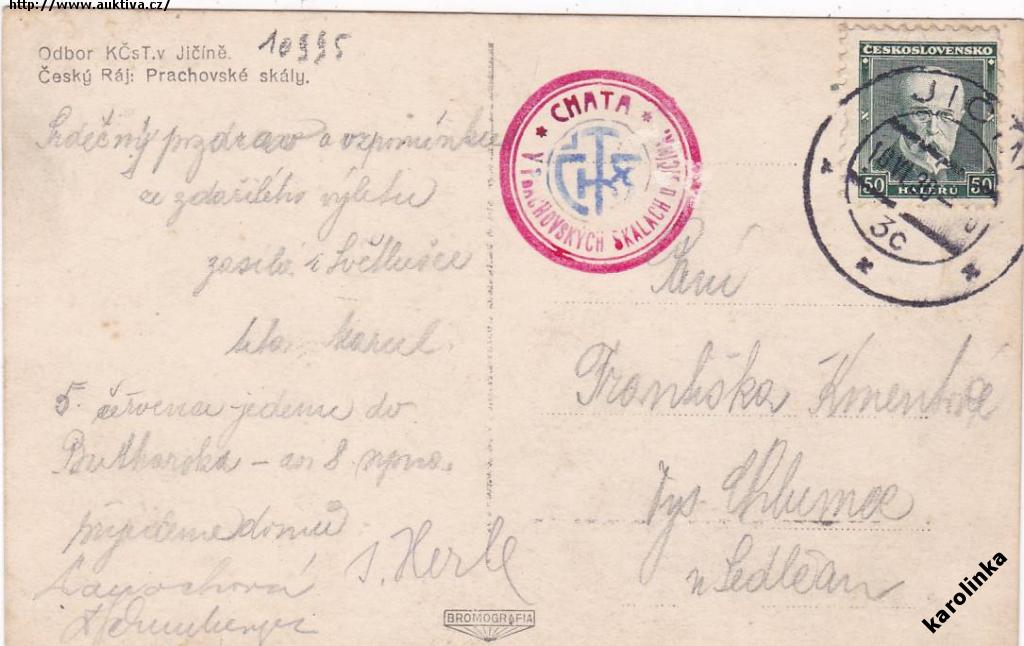 http://www.auktiva.cz/
Odbor KČsT.v Jičíně. 10995
Český Ráj: Prachovské skály.
Srdečný pozdrav a vzpomínku
ze zdařilého výletu
zasílá i Světlušce
teta Karel.
5. července jedeme do
a 8 srpna
přijedeme domů
J. Herle
BROMOGRAFIA
* CHATA *
V PRACHOVSKÝCH SKALÁCH U JIČÍNA
KČST
ČESKOSLOVENSKO
50 HALÉRŮ 50
JIČÍN
3c
Paní
Františka Kmentová
Vys. Chlumec
u Sedlčan
karolinka